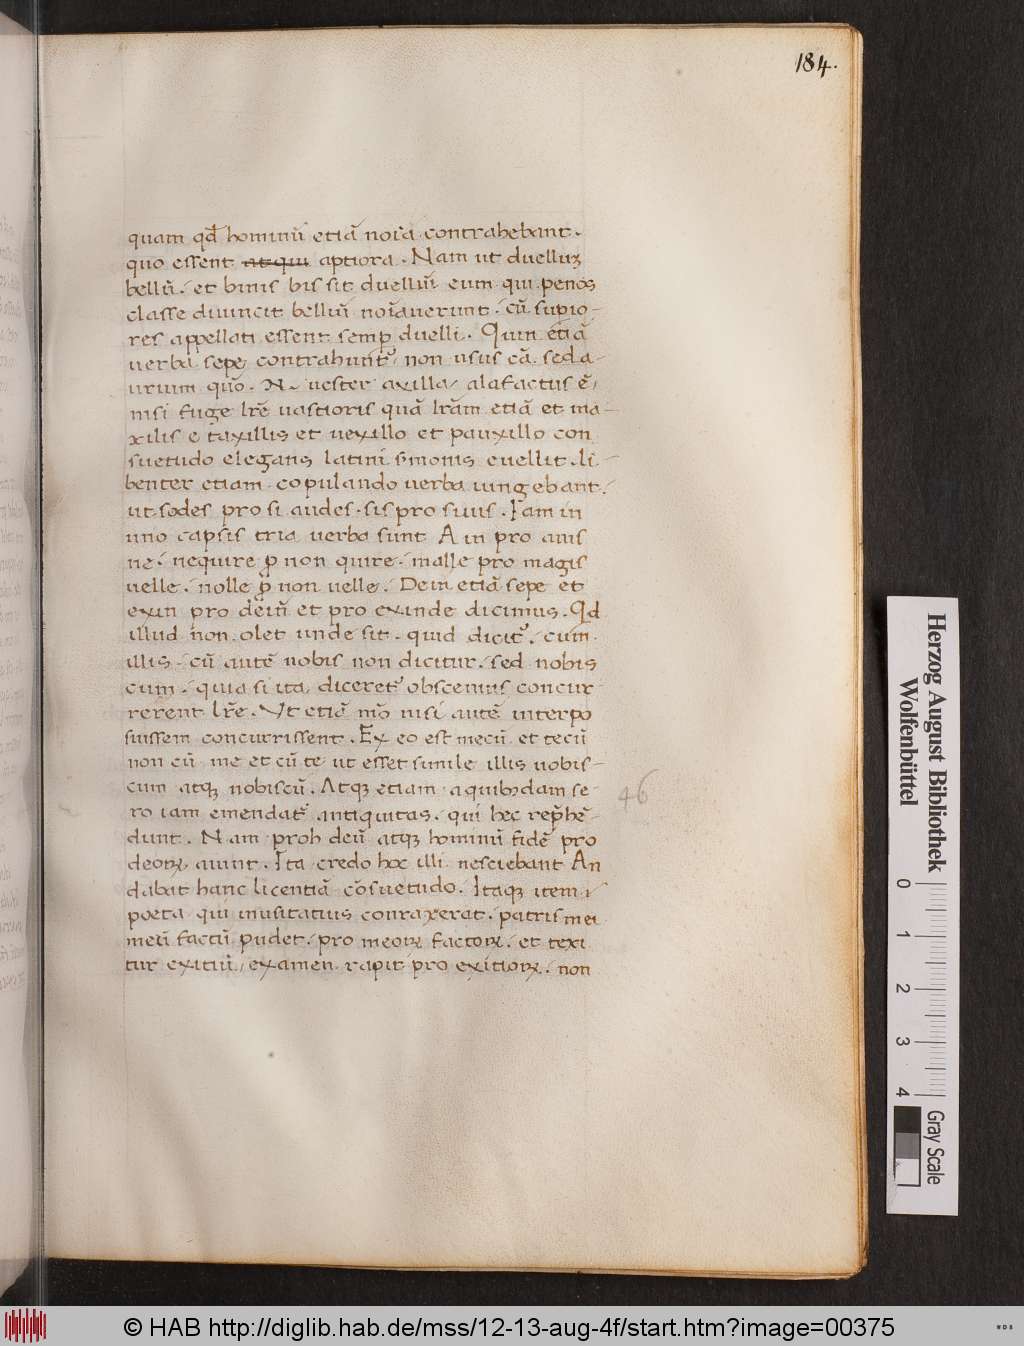 184.
quam qđ hominū etiā noīa contrahebant.
quo essent atqui aptiora. Nam ut duelluʒ
bellū. et binis bis sit duellū eum qui penos
classe diuincit bellū noīauerunt. cū supio-
res appellati essent semp duelli. Quin etiā
uerba sepe contrahuntᷣ non usus cā. sed a-
urium quō. N. uester axilla, ala factus ē,
nisi fuge lrē uastioris quā lrām etiā et ma-
xilis e taxillis et uexillo et pauxillo con
suetudo elegans latini smonis euellit. li-
benter etiam copulando uerba iungebant.
ut sodes pro si audes. sis pro siuis. Iam in
uno capsis tria uerba sunt A in pro aius
ne. nequire p non quire. malle pro magis
uelle. nolle p non uelle. Dein etiā sepe et
exin pro deiñ et pro exinde dicimus. Qđ
illud non olet unde sit. quid dicitᷣ. cum
illis. cū autē nobis non dicitur. sed nobis
cum. quia si ita diceretᷣ obscenius concur
rerent lrē. Ut etiā mō nisi autē interpo
suissem concurrissent. Ex eo est mecū et tecū
non cū me et cū te ut esset simile illis uobis-
cum atqʒ nobiscū. Atqʒ etiam a quibusdam se
ro iam emendatᷣ antiquitas. qui hec reprehē
dunt. Nam proh deū atqʒ hominū fidē pro
deoꝝ aiunt. Ita credo hoc illi nesciebant An
dabat hanc licentiā cōsuetudo. Itaqʒ item i
poeta qui inusitatius contraxerat. patris mei
meū factū pudet. pro meoꝝ factoꝝ. et texi
tur exitiū, examen rapit pro exitioꝝ. non
46
Herzog August Bibliothek
Wolfenbüttel
0 1 2 3 4
Gray Scale
© HAB http://diglib.hab.de/mss/12-13-aug-4f/start.htm?image=00375